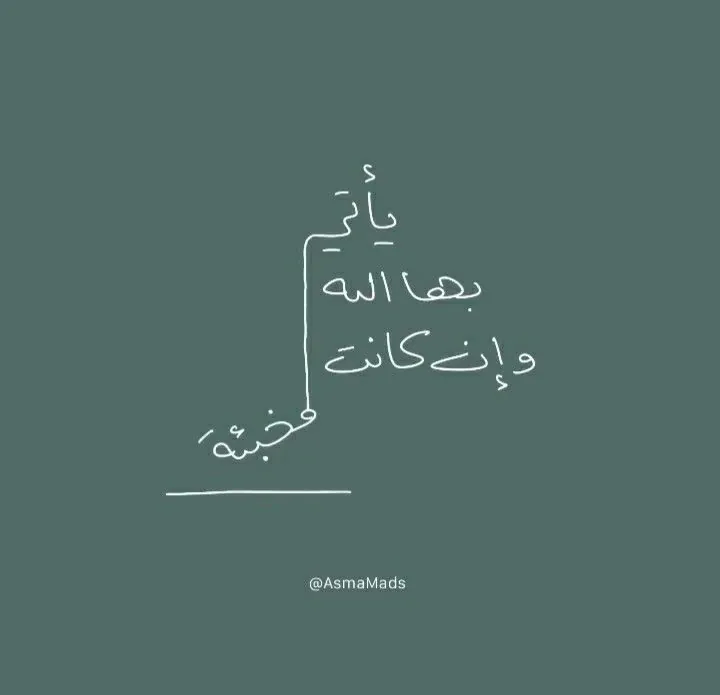 يأتي
بها الله
وإن كانت
مخبئةَ
@AsmaMads